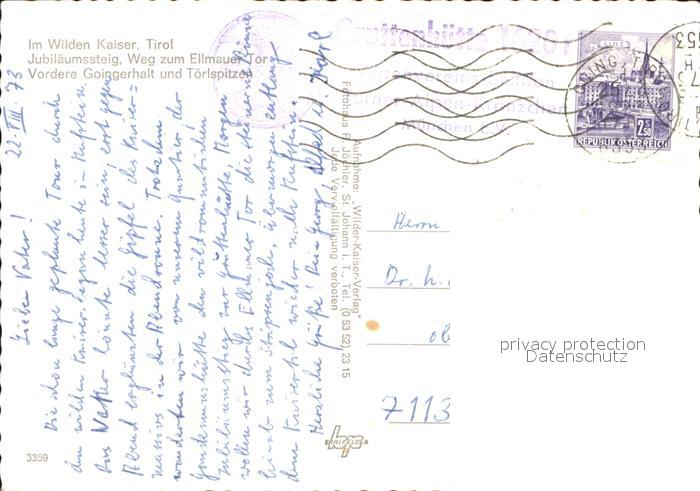 Im Wilden Kaiser, Tirol
Jubiläumssteig, Weg zum Ellmauer Tor
Vordere Goingerhalt und Törlspitzen
22. VIII. 73
Lieber Vater!
Die schon lange geplante Tour durch
den wilden Kaiser begann heute in Kufstein.
Das Wetter könnte besser sein, erst gegen
Abend erglänzten die Gipfel des Kaiser=
massivs in der Abendsonne. Trotzdem
wanderten wir von unserem Quartier der
den wildromantischen
Jubiläumssteig zur Gruttenhütte. Morgen
wollen wir durchs Ellmauer Tor die Steinerne Rinne
hinab zum Stripsenjoch, übermorgen entlang
dem Kaisertal wieder nach Kufstein.
Herzliche Grüße! Dein Georg,
Gruttenhütte
München e.V.
GOING / TIROL
2.50
REPUBLIK ÖSTERREICH
Aufnahme: "Wilder-Kaiser-Verlag"
Fotohaus F. Jöchler, St. Johann i. T., Tel. (0 53 52) 23 15
Jede Vervielfältigung verboten
Herrn
Dr. h.
7113
privacy protection
Datenschutz
3359